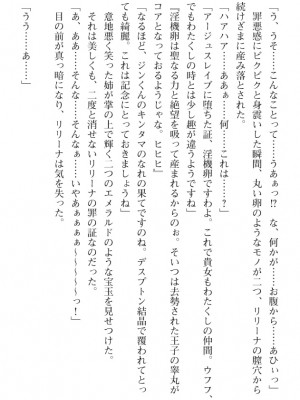 「う、うそ……こんなことって……ああぁっ!? な、何かが……お腹から……あひぃっ」
罪悪感にビクビクと身震いした瞬間、丸い卵のようなモノが二つ、リリーナの膣穴から
続けざまに産み落とされた。
「ハァハァ……ああぁぁ……何……これは……?」
「アージュスレイブに堕ちた証、淫機卵ですわよ。これで貴女もわたくしの仲間。ウフフ、
でもわたくしの時とは少し趣が違うようですね」
『淫機卵は聖なる力と絶望を吸って産まれるからのぉ。そいつは去勢された王子の睾丸が
コアとなっておるようじゃな。ヒヒヒ』
「なるほど、ジンくんのキンタマのなれの果てですのね。デスプトン結晶で覆われてとっ
ても綺麗。これは記念にとっておきましょうね」
意地悪く笑った姉が掌の上で輝く二つのエメラルドのような宝玉を見せつけた。
それは美しくも、二度と消せないリリーナの罪の証なのだった。
「あ、ああ……そんな……そんなぁ……いやあぁぁぁ～～～～～っ!」
目の前が真っ暗になり、リリーナは気を失った。
「うう……あ……」